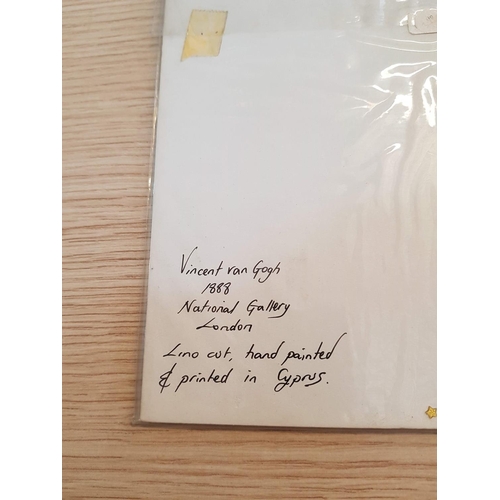 Vincent van Gogh
1888
National Gallery
London
Lino cut, hand painted
& printed in Cyprus.